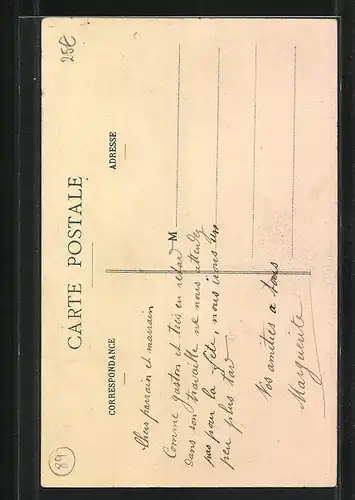 25€
CARTE POSTALE
CORRESPONDANCE
ADRESSE
M
Chers parrain et marrain
Comme gaston et tres en retard
dans son travaille ne nous attendez
pas pour la fête, nous irons un
peu plus tard
Nos amitiés a tous
Marguerite
89